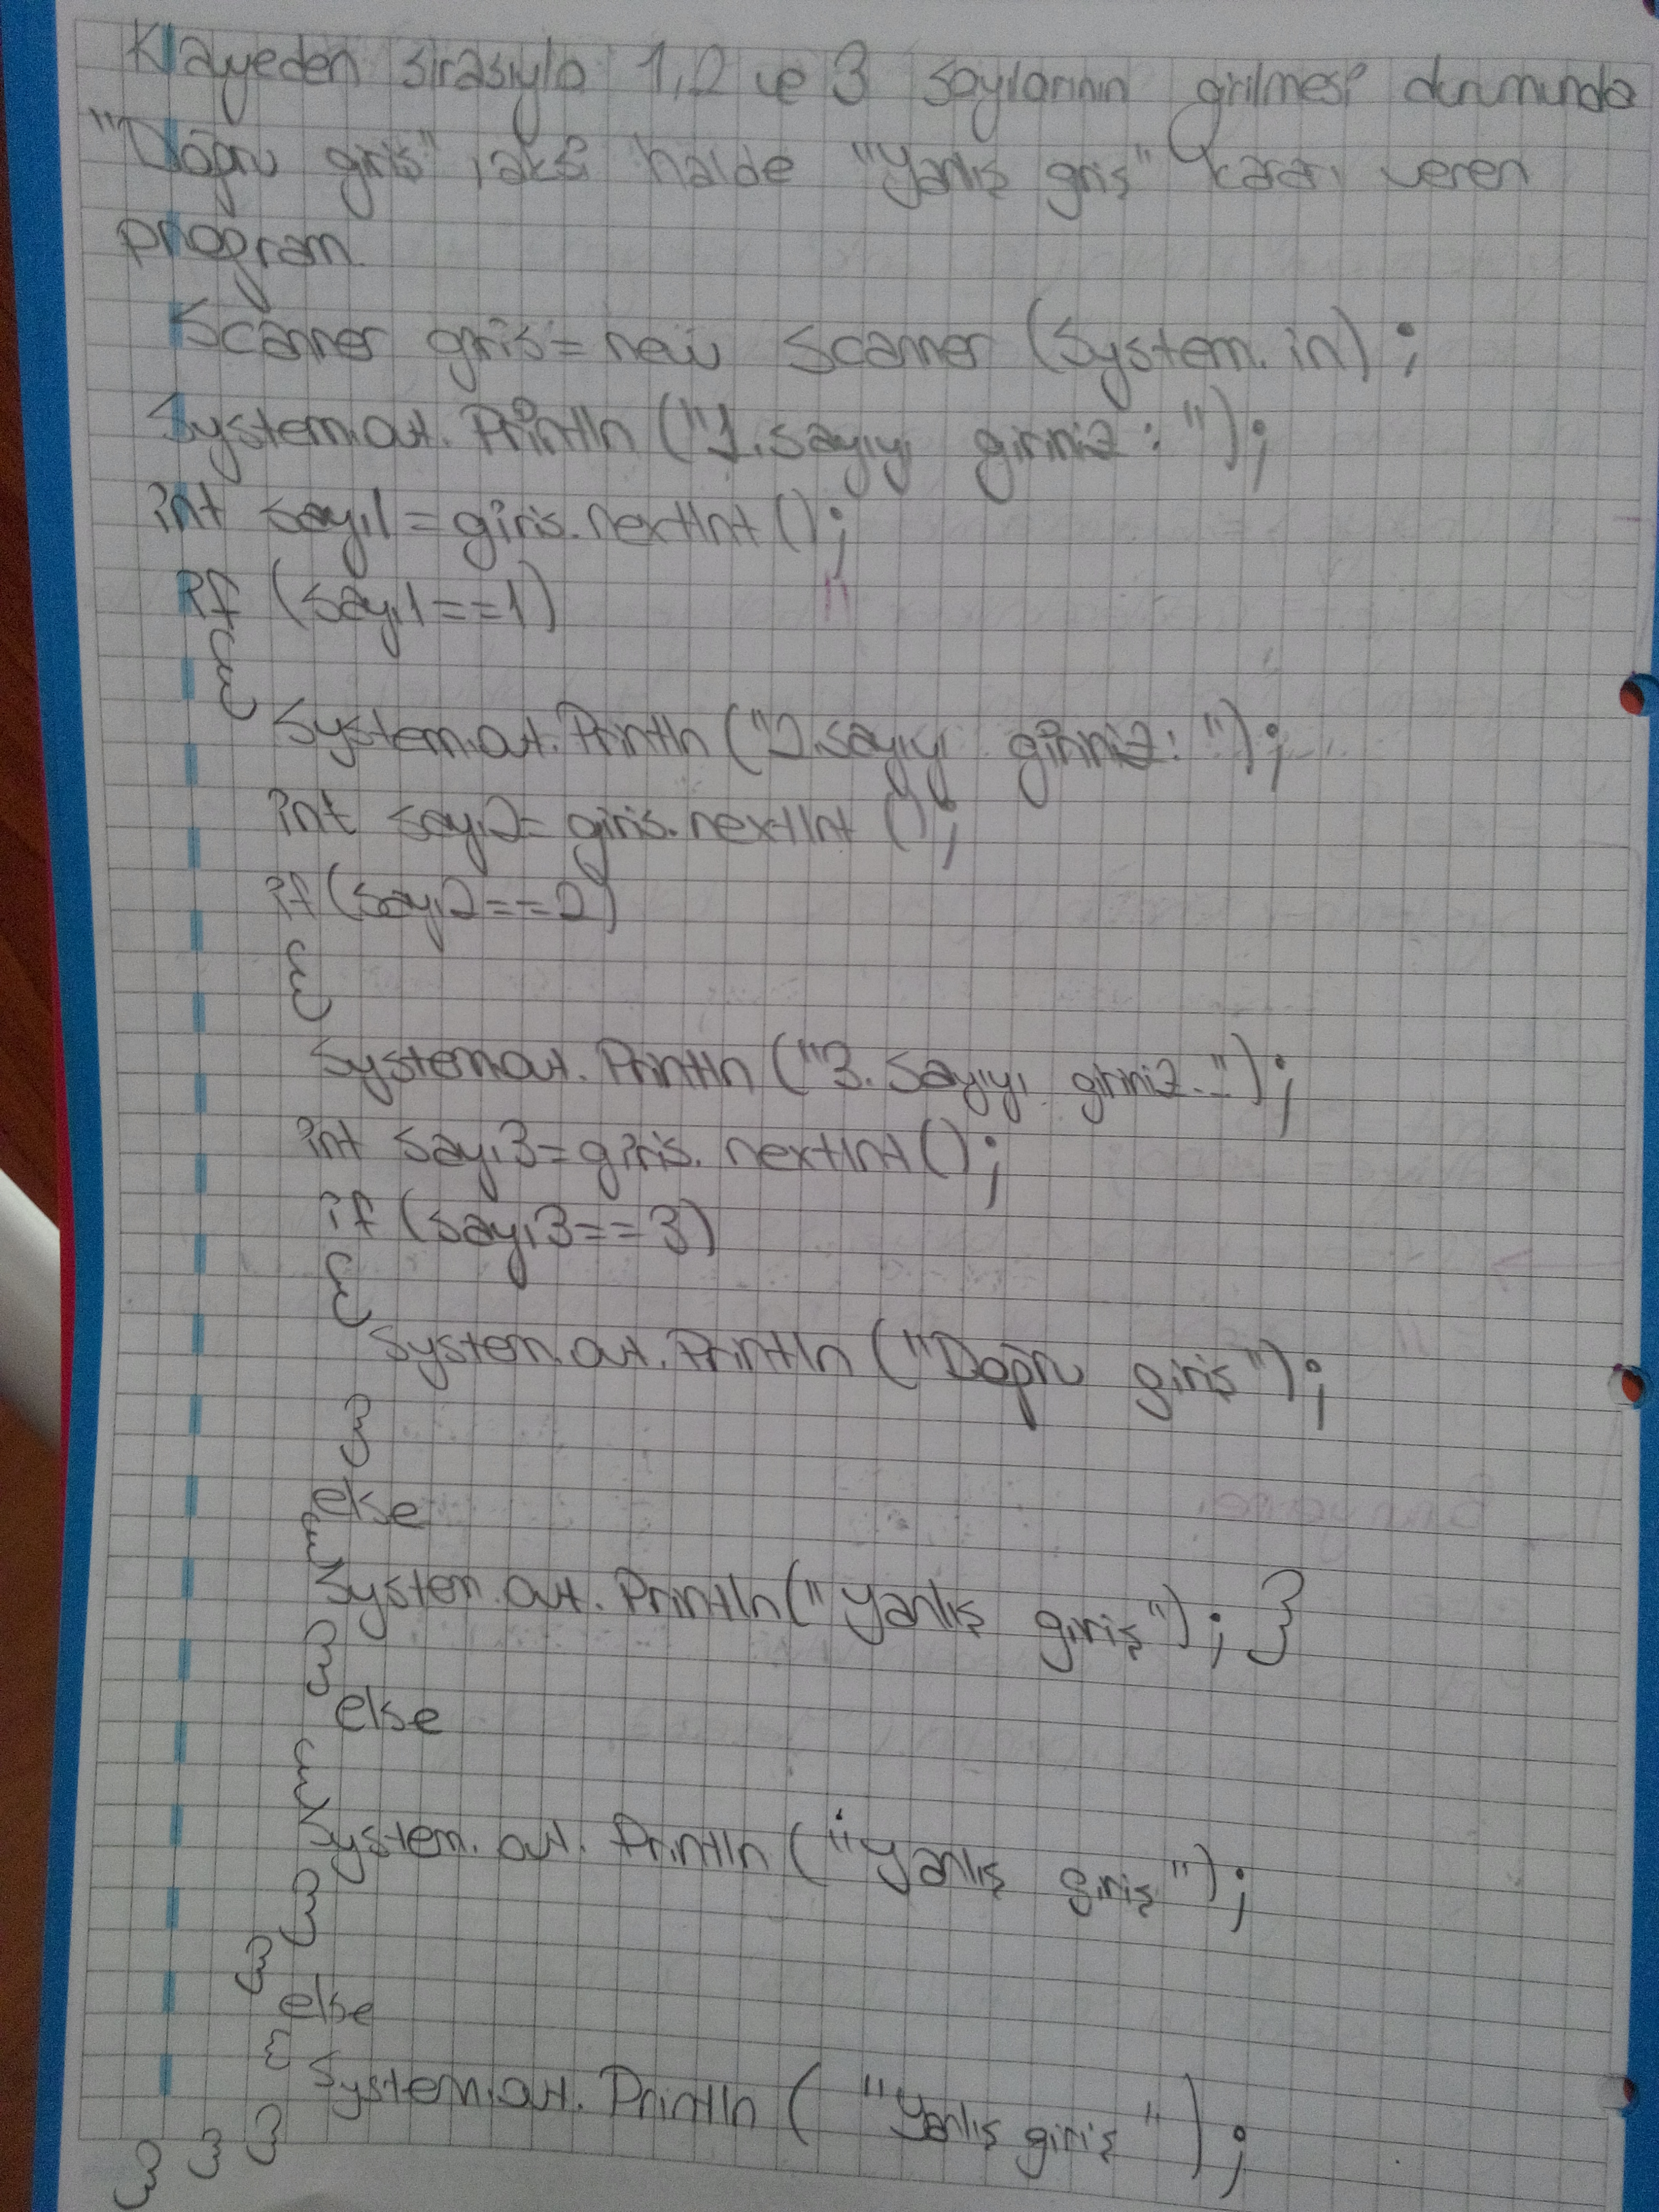 Klavyeden sırasıyla 1,2 ve 3 sayılarının girilmesi durumunda
"Doğru giriş", aksi halde "Yanlış giriş" kararı veren
program.
Scanner giris = new Scanner (System.in);
System.out.Println ("1.sayıyı giriniz : ");
int sayı1 = giris.nextInt();
if (sayı1==1)
{
System.out.Println ("2.sayıyı giriniz: ");
int sayı2= giris.nextInt ();
if (sayı2==2)
{
System.out.Println ("3. Sayıyı giriniz:");
int sayı3=giris. nextInt();
if (sayı3==3)
{
System.out.Println ("Doğru giriş");
}
else
{
System.out.Println("Yanlış giriş"); }
}
else
{
System.out.Println ("Yanlış giriş");
}
}
else
{
System.out.Println ( "Yanlış giriş" );
}
}
}